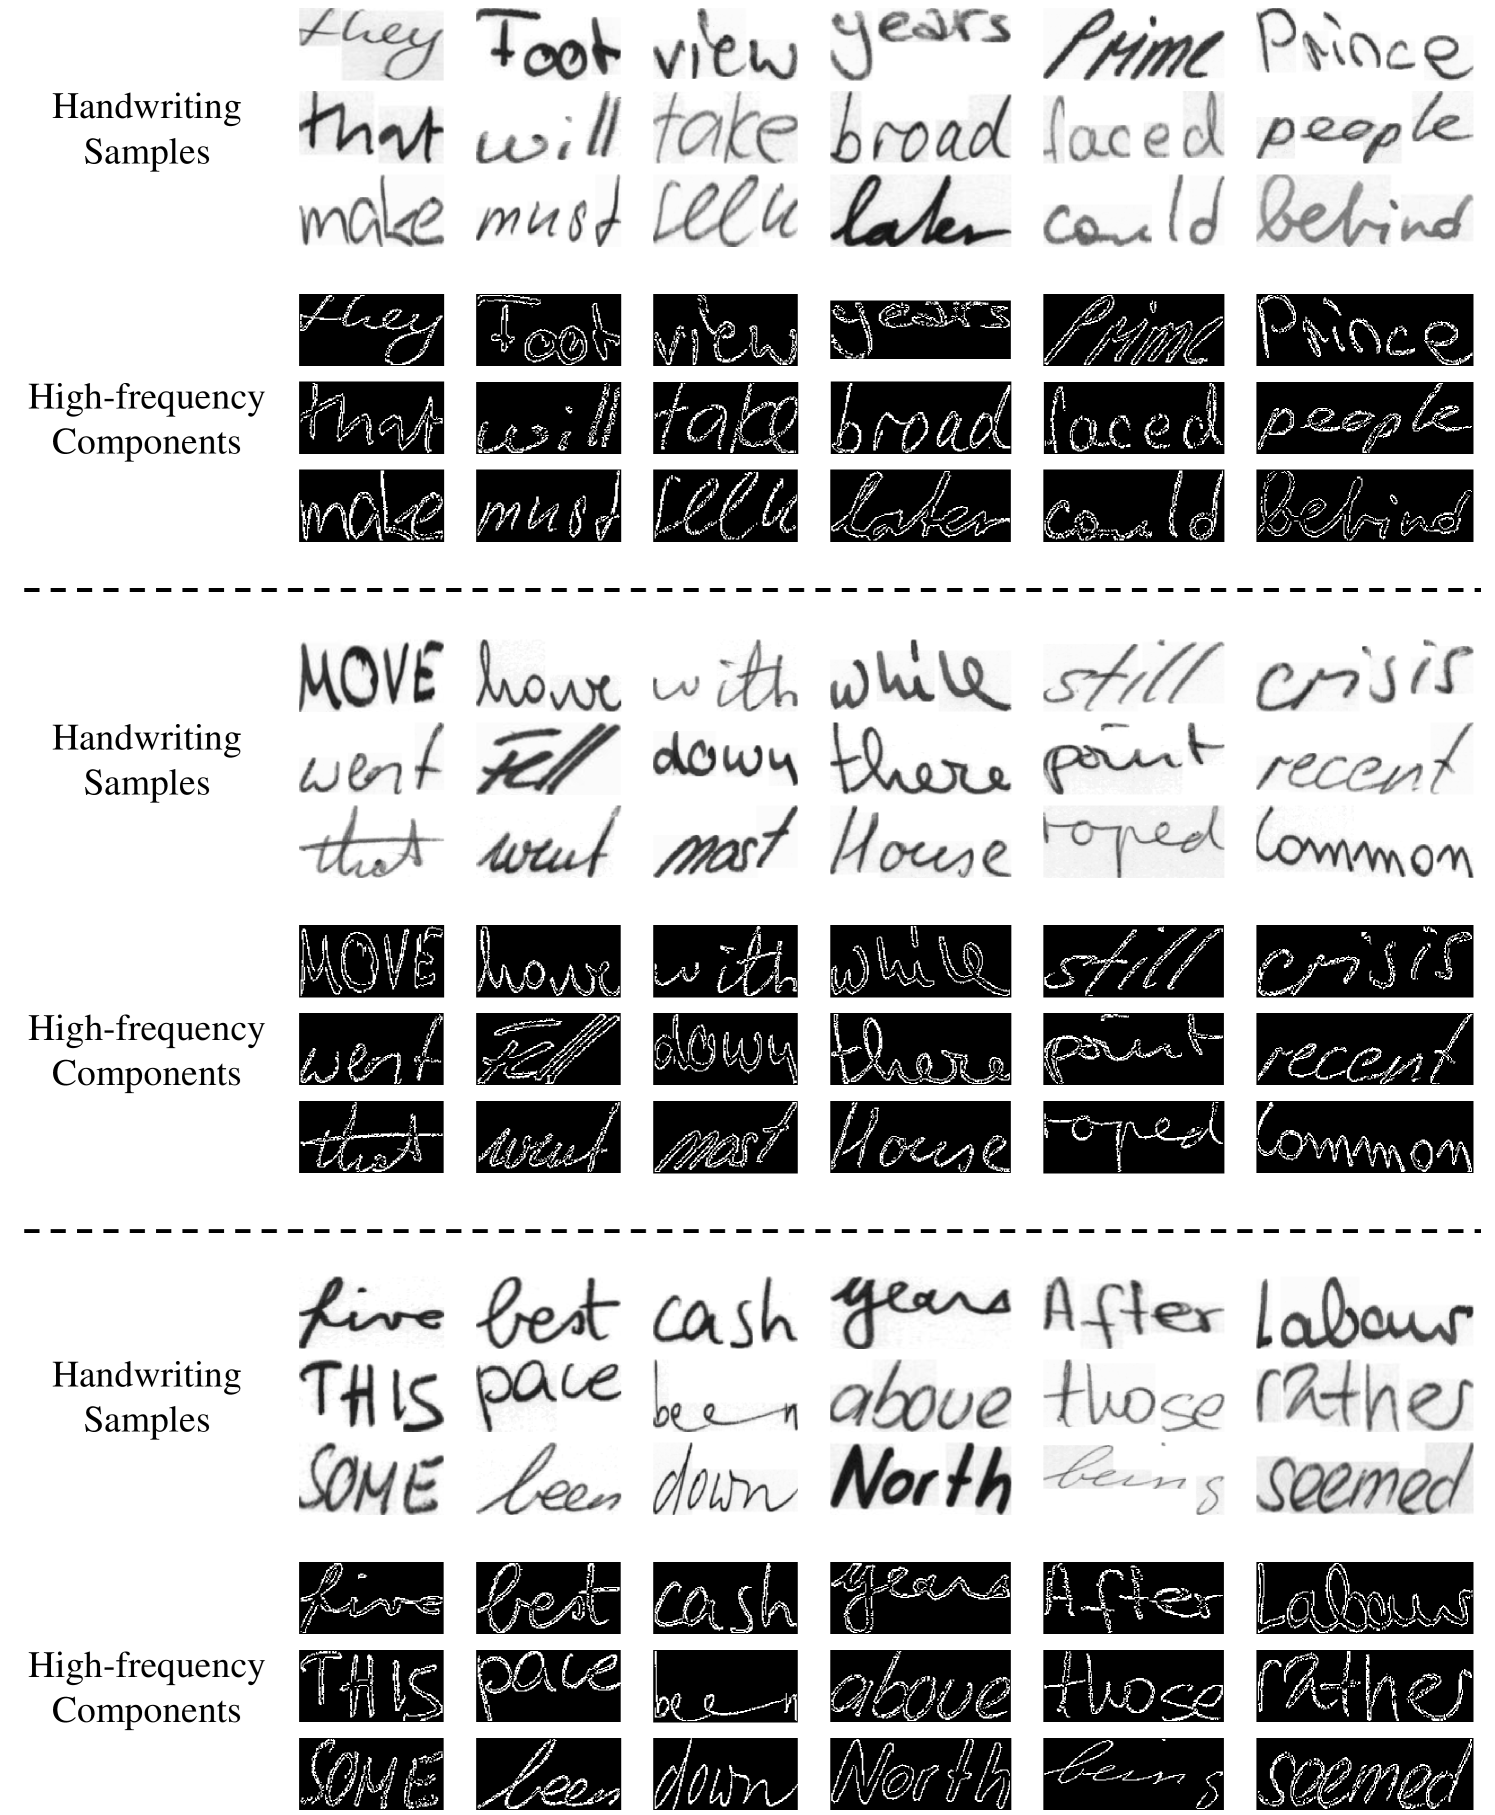 they Foot view years Prime Prince
Handwriting
Samples
that will take broad faced people
make must seen later could behind
they Foot view years Prime Prince
High-frequency
Components
that will take broad faced people
make must seen later could behind
MOVE have with while still crisis
Handwriting
Samples
went Fell down there point recent
that went most House roped Common
MOVE have with while still crisis
High-frequency
Components
went Fell down there point recent
that went most House roped Common
five best cash years After Labour
Handwriting
Samples
THIS pace been above those rather
SOME been down North being seemed
five best cash years After Labour
High-frequency
Components
THIS pace been above those rather
SOME been down North being seemed